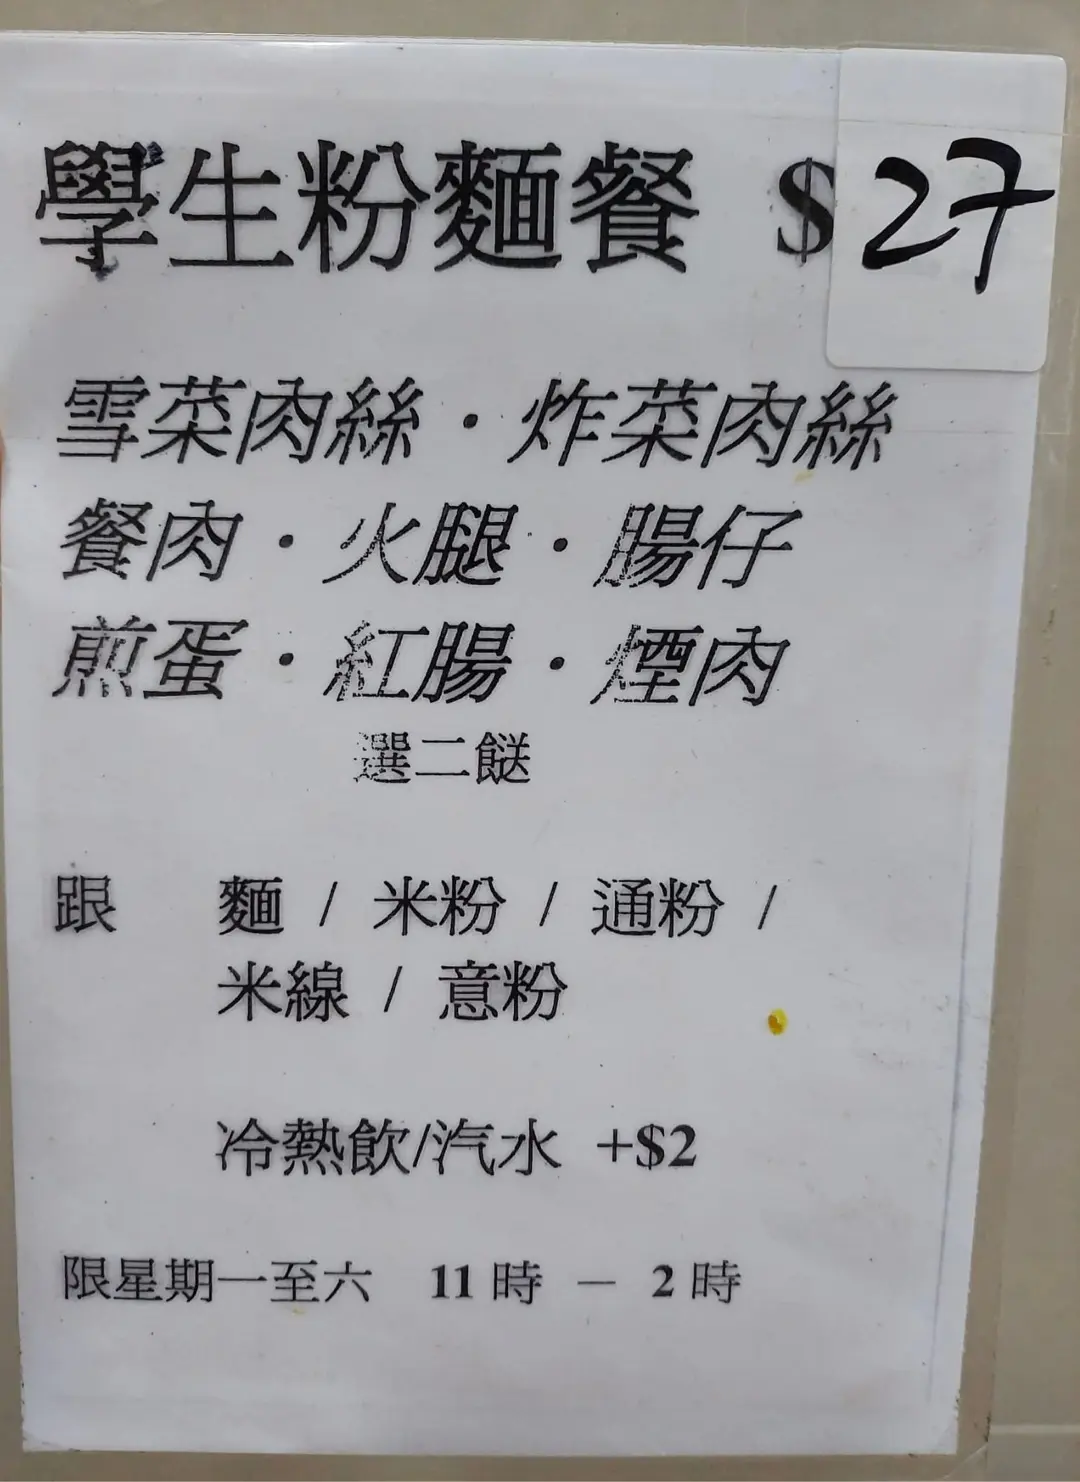 學生粉麵餐 $27
雪菜肉絲·炸菜肉絲
餐肉·火腿·腸仔
煎蛋·紅腸·煙肉
選二餸
跟 麵 / 米粉 / 通粉 /
米線 / 意粉
冷熱飲/汽水 +$2
限星期一至六 11時 — 2時